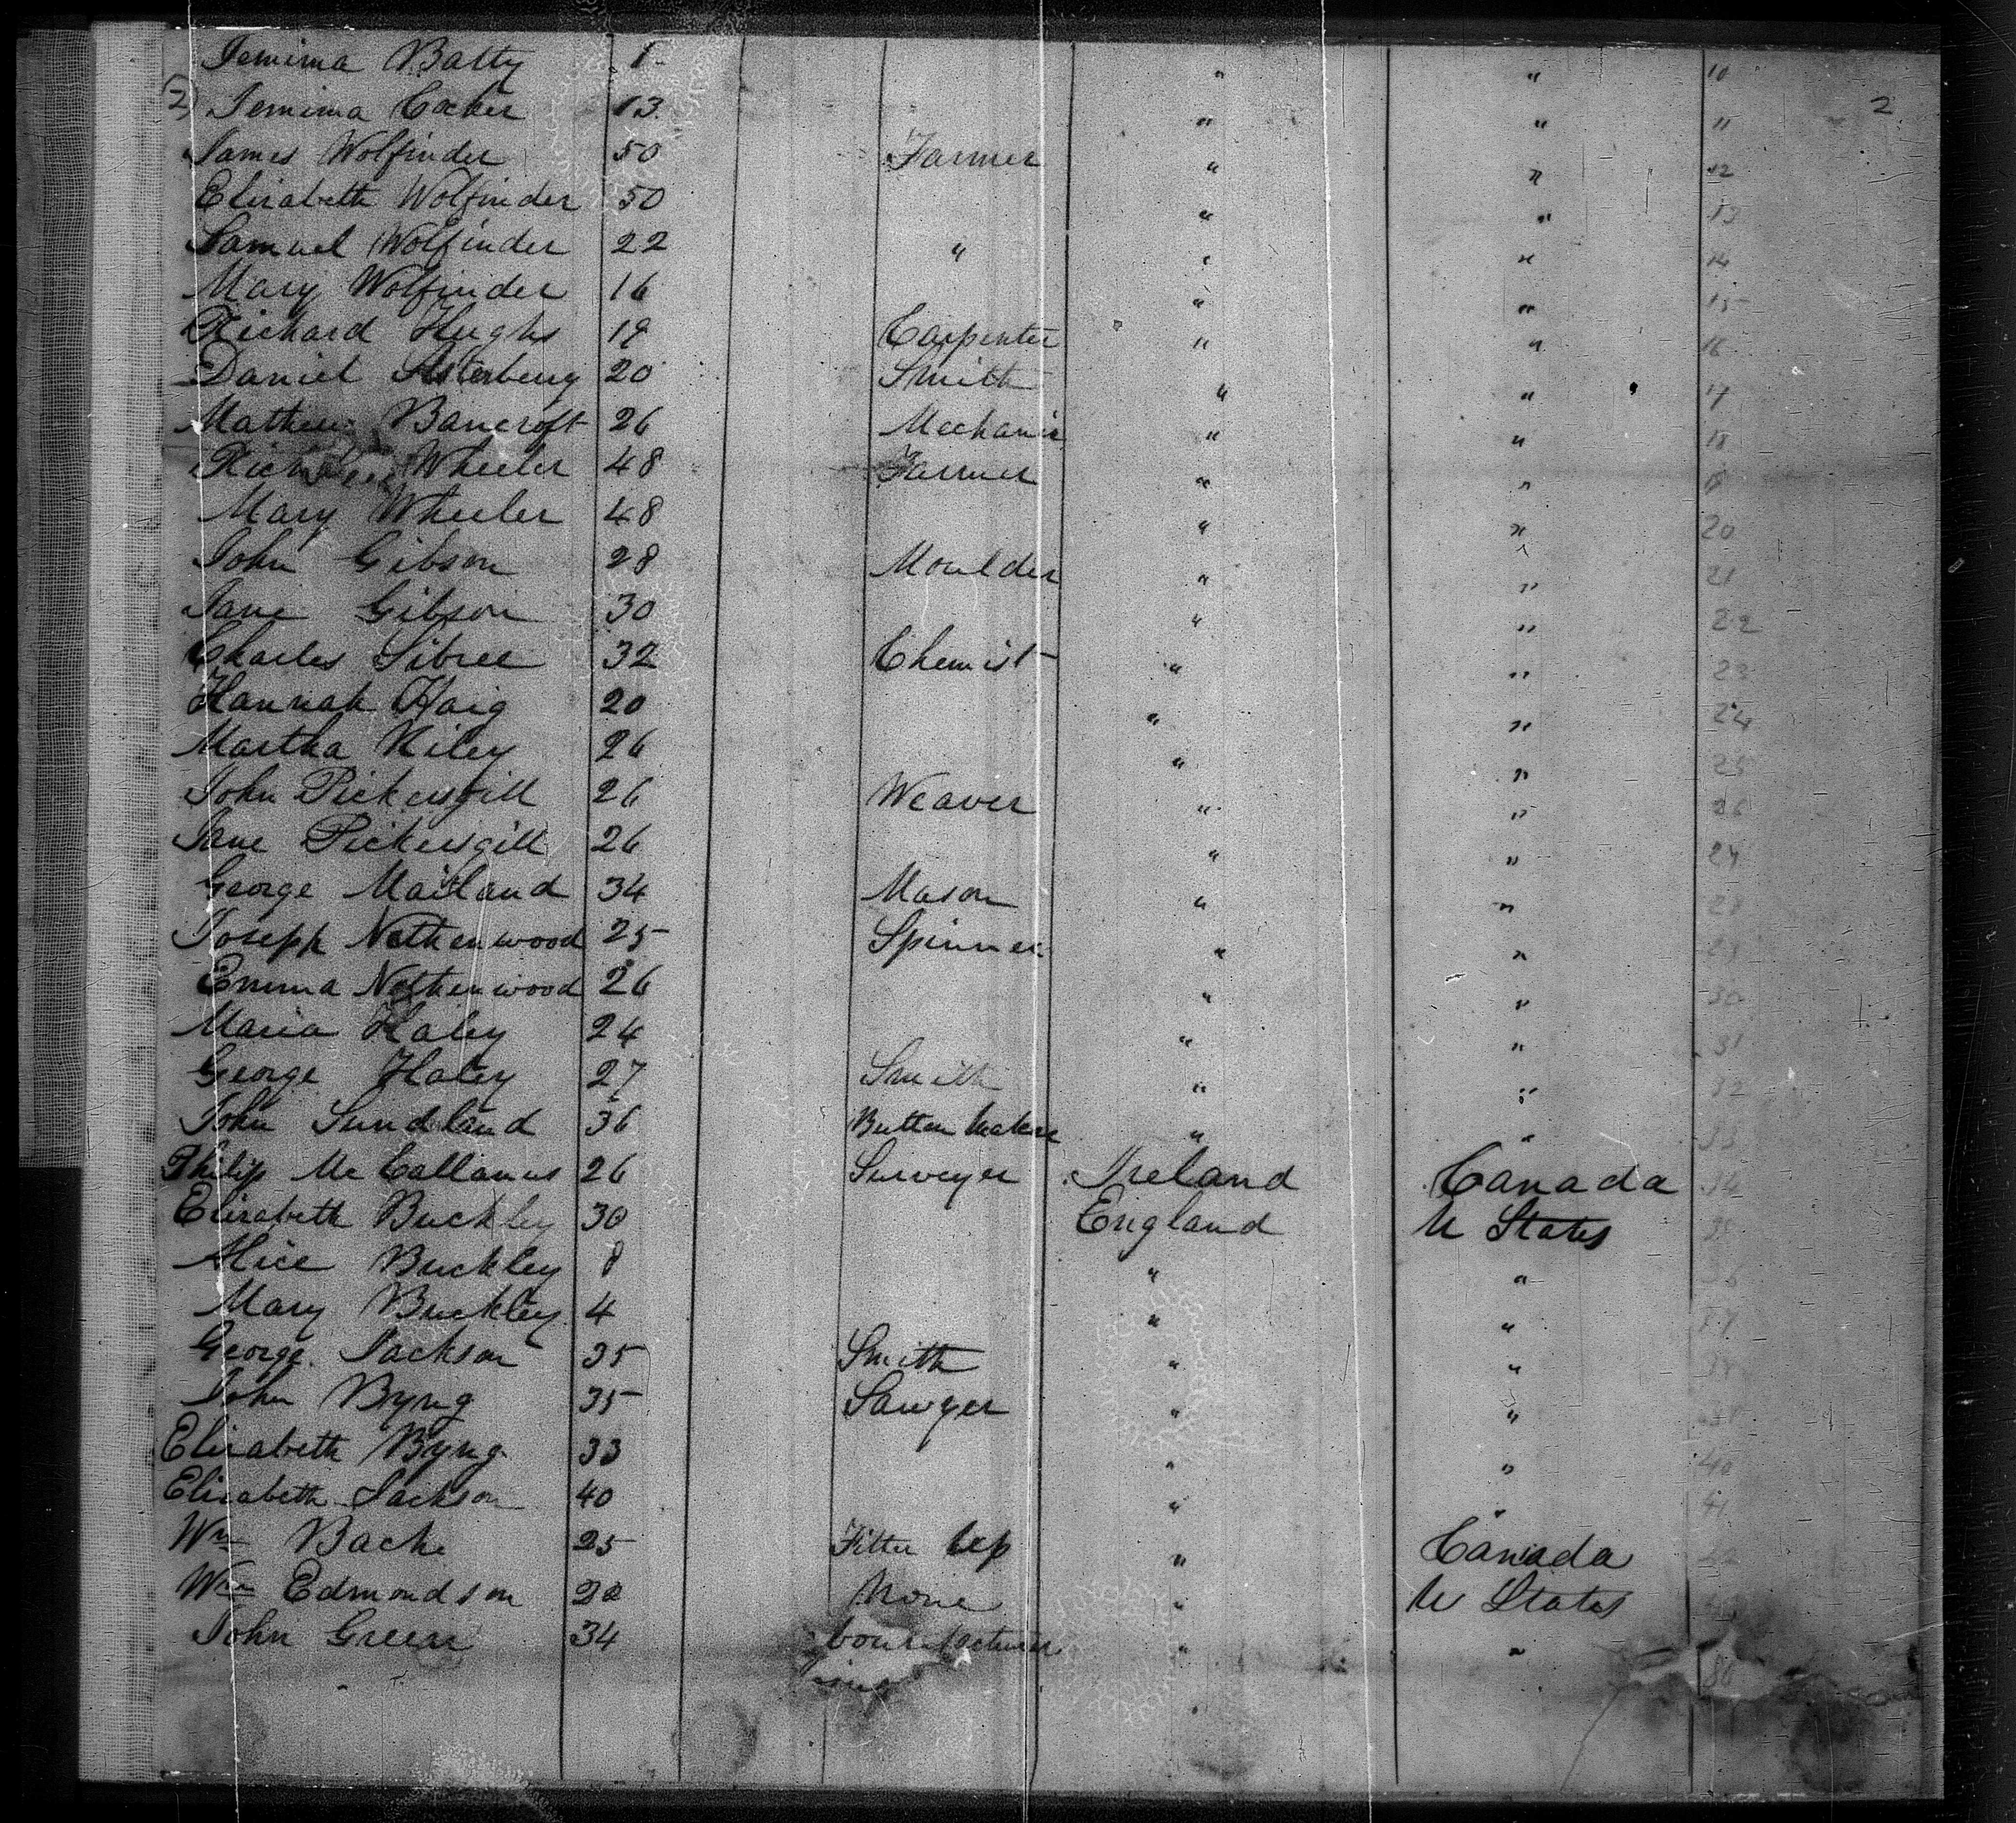 Jemima Batty 1 " " 10
(2) Jemima Cocker 13 " " 11 2
James Wolfinder 50 Farmer " " 12
Elizabeth Wolfinder 50 " " 13
Samuel Wolfinder 22 " " " 14
Mary Wolfinder 16 " " 15
Richard Hughs 19 Carpenter " " 16
Daniel 20 Smith " " 17
Mathew Bancroft 26 Mechanic " " 18
Wheeler 48 Farmer " "
Mary Wheeler 48 " " 20
John Gibson 28 Moulder " " 21
Jane Gibson 30 " " 22
Charles Sibree 32 Chemist " " 23
Hannah Haig 20 " " 24
Martha Riley 26 " " 25
John Pickersgill 26 Weaver " " 26
Jane Pickersgill 26 " " 27
George Maitland 34 Mason " " 28
Joseph Netherwood 25 Spinner " " 29
Emma Netherwood 26 " " 30
Maria Haley 24 " " 31
George Haley 27 Smith " " 32
John Sundland 36 Button Maker " " 33
Philip Mc Callamus 26 Surveyer Ireland Canada 34
Elizabeth Buckley 30 England U States 35
Alice Buckley 8 " " 36
Mary Buckley 4 " " 37
George Jackson 35 Smith " " 38
John Byng 35 Sawyer " "
Elizabeth Byng 33 " " 40
Elizabeth Jackson 40 " " 41
Wm Bache 25 Fitter " Canada 42
Wm Edmondson 20 None " U States
John Green 34 " "